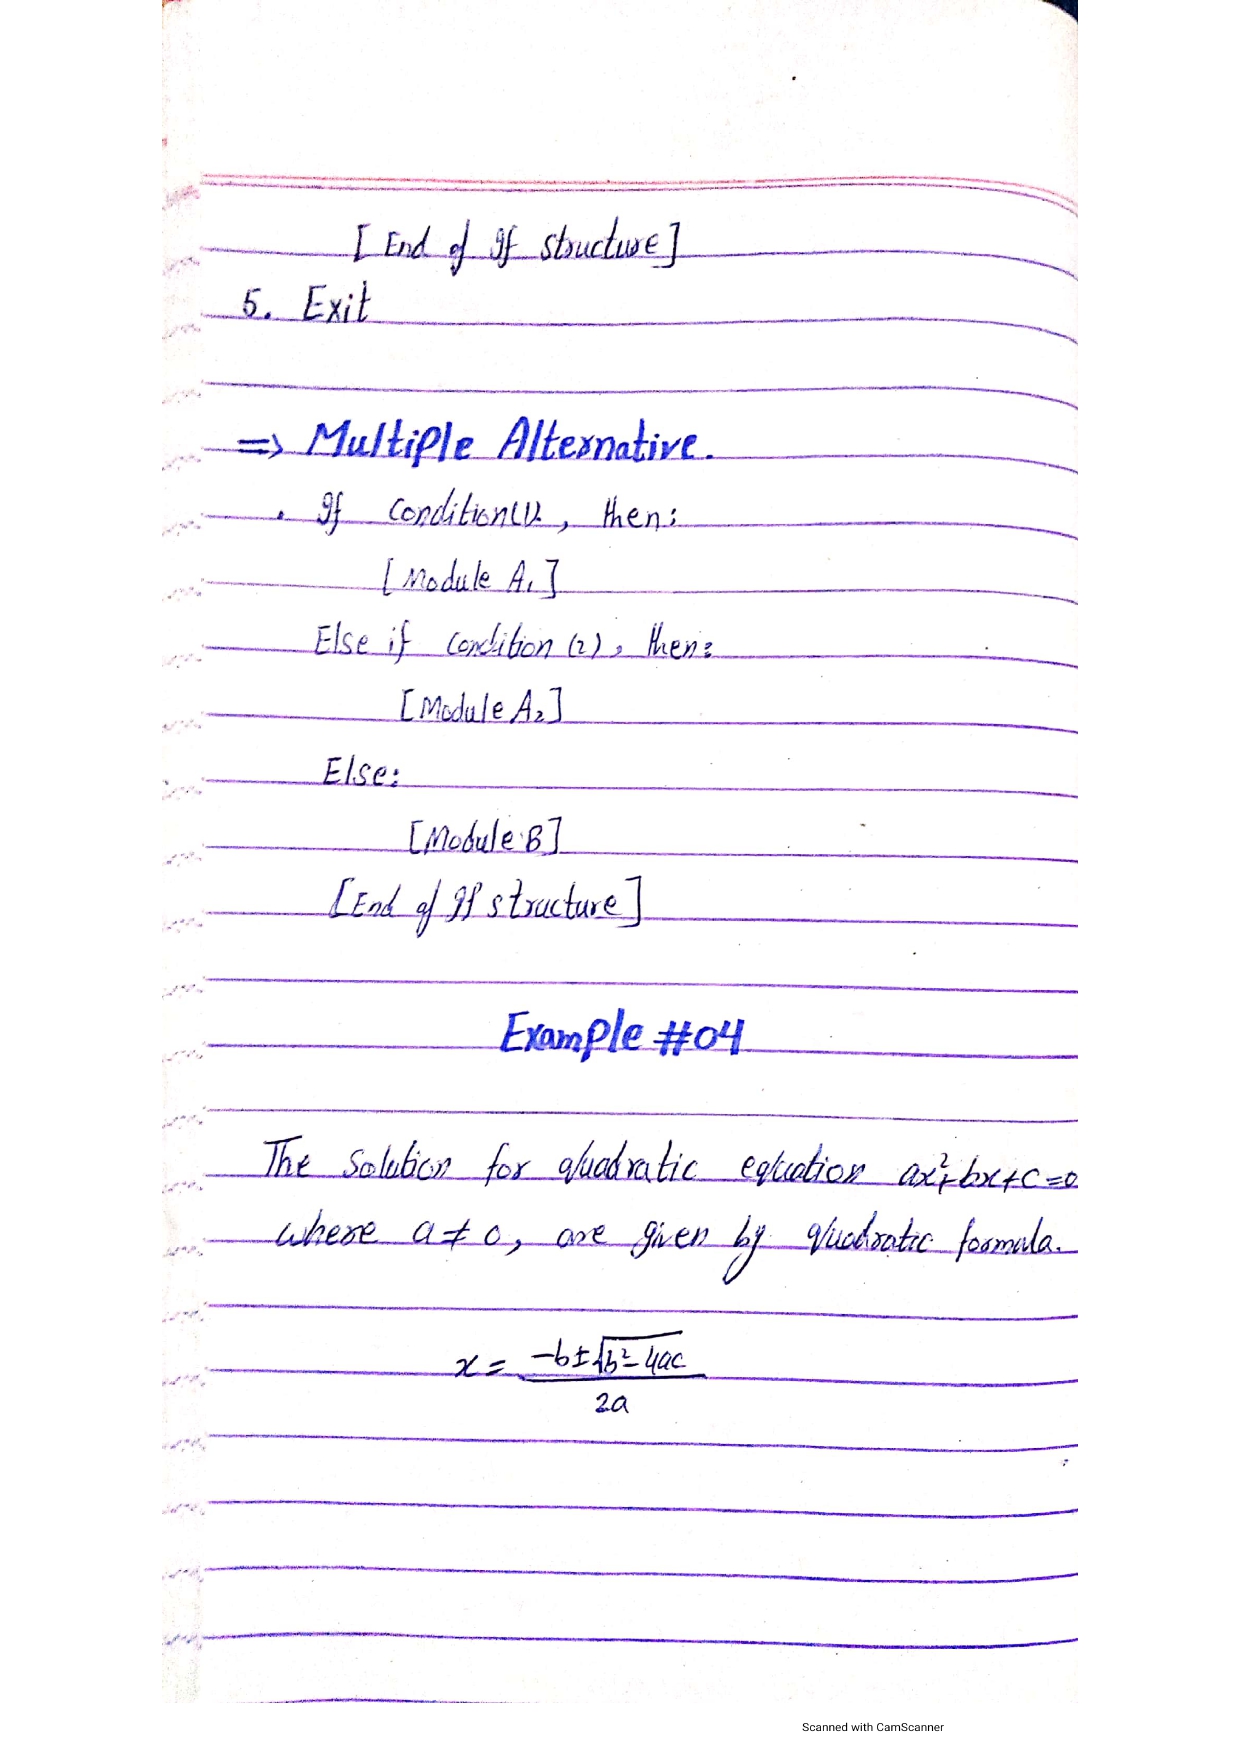 [End of If structure]
5. Exit
=> Multiple Alternative.
. If Condition(1), then:
[Module A₁]
Else if condition (2), then:
[Module A₂]
Else:
[Module B]
[End of If structure]
Example #04
The Solution for quadratic equation ax²+bx+c=0
where a ≠ 0, are given by quadratic formula.
x = -b±√b²-4ac / 2a
Scanned with CamScanner